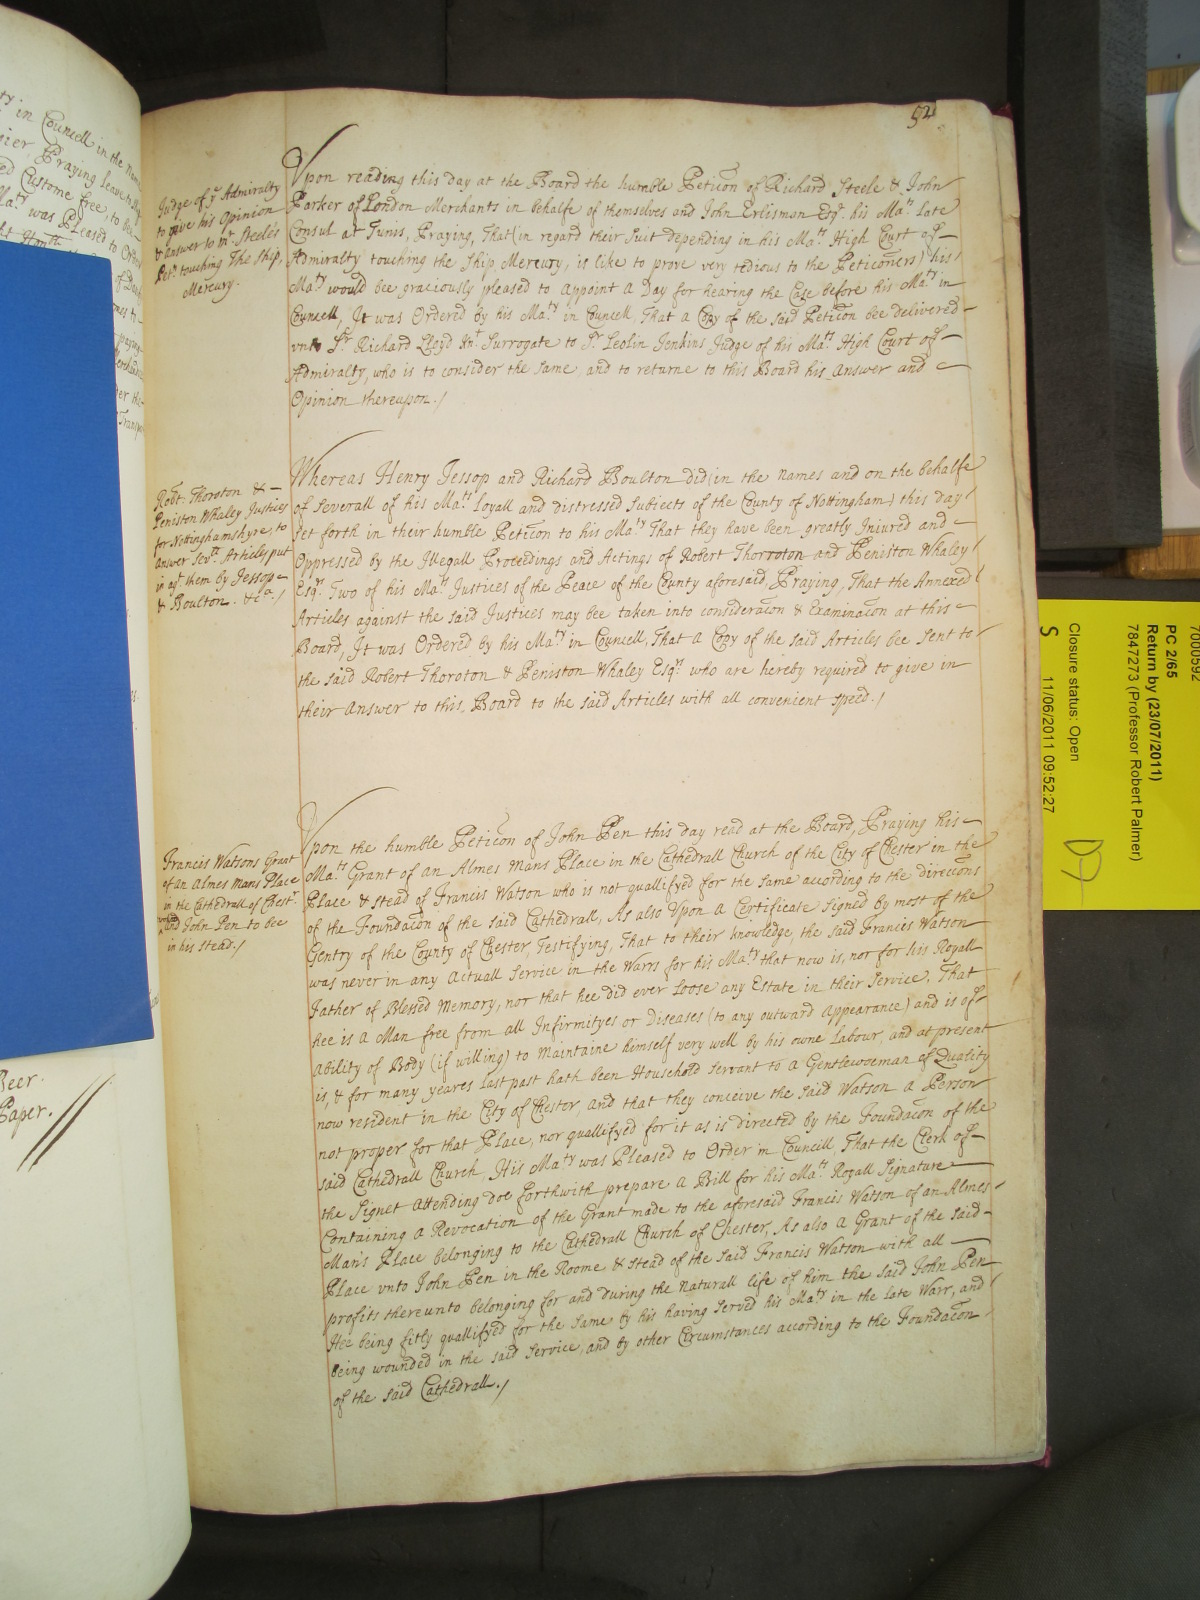 52
Judge of ye Admiralty
to give his Opinion
& answer to Mr. Steele's
Petn. touching The Ship,
Mercury.
Vpon reading this day at the Board the humble Peticon of Richard Steele & John
Parker of London Merchants in behalfe of themselves and John Erlisman Esqr. his Mats. late
Consul at Tunis, Praying, That (in regard their Suit depending in his Mats. High Court of
Admiralty touching the Ship Mercury, is like to prove very tedious to the Peticoners) his
Maty would bee graciously pleased to appoint a Day for hearing the Case before his Maty in
Councell, It was Ordered by his Maty. in Councell, That a Copy of the said Peticon bee delivered
vnto Sr. Richard Lloyd Knt. Surrogate to Sr. Leolin Jenkins Judge of his Mats. High Court of
Admiralty, who is to consider the same, and to returne to this Board his Answer and
Opinion thereupon./
Robt. Thoroton &
Peniston Whaley Justices
for Nottinghamshyre, to
answer sevll. Articles put
in agt them by Jessop
& Boulton. &ca./
Whereas Henry Jessop and Richard Boulton did (in the names and on the behalfe
of severall of his Mats. Loyall and distressed Subiects of the County of Nottingham) this day
set forth in their humble Peticon to his Maty That they have been greatly Iniured and
Oppressed by the Illegall Proceedings and Actings of Robert Thorroton and Peniston Whaley
Esqrs. Two of his Mats. Justices of the Peace of the County aforesaid, Praying, That the Annexed
Articles against the said Justices may bee taken into consideracon & Examinacon at this
Board, It was Ordered by his Maty. in Councell, That a Copy of the said Articles bee sent to
the said Robert Thoroton & Peniston Whaley Esqrs. who are hereby required to give in
their Answer to this Board to the said Articles with all convenient speed./
Francis Watsons Grant
of an Almes Mans Place
in the Cathedrall of Chestr.
and John Pen to bee
in his stead./
Vpon the humble Peticon of John Pen this day read at the Board, Praying his
Mats. Grant of an Almes Mans Place in the Cathedrall Church of the City of Chester in the
Place & stead of Francis Watson who is not quallifyed for the same according to the direccons
of the Foundacon of the said Cathedrall, As also Vpon a Certificate signed by most of the
Gentry of the County of Chester, Testifying, That to their knowledge, the said Francis Watson
was never in any Actuall Service in the Warrs for his Maty that now is, nor for his Royall
Father of Blessed Memory, nor that hee did ever loose any Estate in their Service, That
hee is a Man free from all Infirmityes or Diseases (to any outward Appearance) and is of
Ability of Body (if willing) to Maintaine himself very well by his owne Labour, and at present
is, & for many yeares last past hath been Household Servant to a Gentlewoeman of Quality
now resident in the City of Chester, and that they conceive the said Watson a Person
not proper for that Place, nor quallifyed for it as is directed by the Foundacon of the
said Cathedrall Church, His Maty was Pleased to Order in Councill, That the Clerk of
the Signet attending doe forthwith prepare a Bill for his Mats. Royall Signature
Containing a Revocation of the Grant made to the aforesaid Francis Watson of an Almes
Man's Place belonging to the Cathedrall Church of Chester, As also a Grant of the said
Place vnto John Pen in the Roome & stead of the said Francis Watson with all
profits thereunto belonging for and during the naturall life of him the said John Pen
Hee being fitly quallifyed for the same by his having served his Maty. in the late Warr, and
being wounded in the said Service, and by other Circumstances according to the Foundacon
of the said Cathedrall./
in Councell in the
Praying leave
Custome free, to be
Maty. was Pleased to
Beer.
Paper.
7000592
PC 2/65
Return by (23/07/2011)
7847273 (Professor Robert Palmer)
Closure status: Open
S 11/06/2011 09:52:27